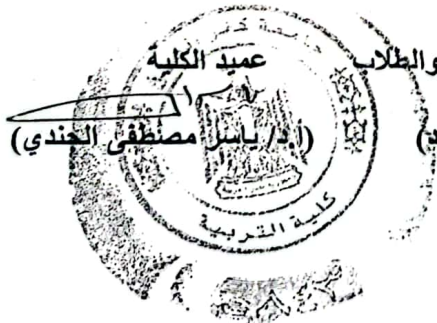 عميد الكلية
والطلاب
(أ.د/ ياسر مصطفى الجندي)
جامعة
كلية التربية